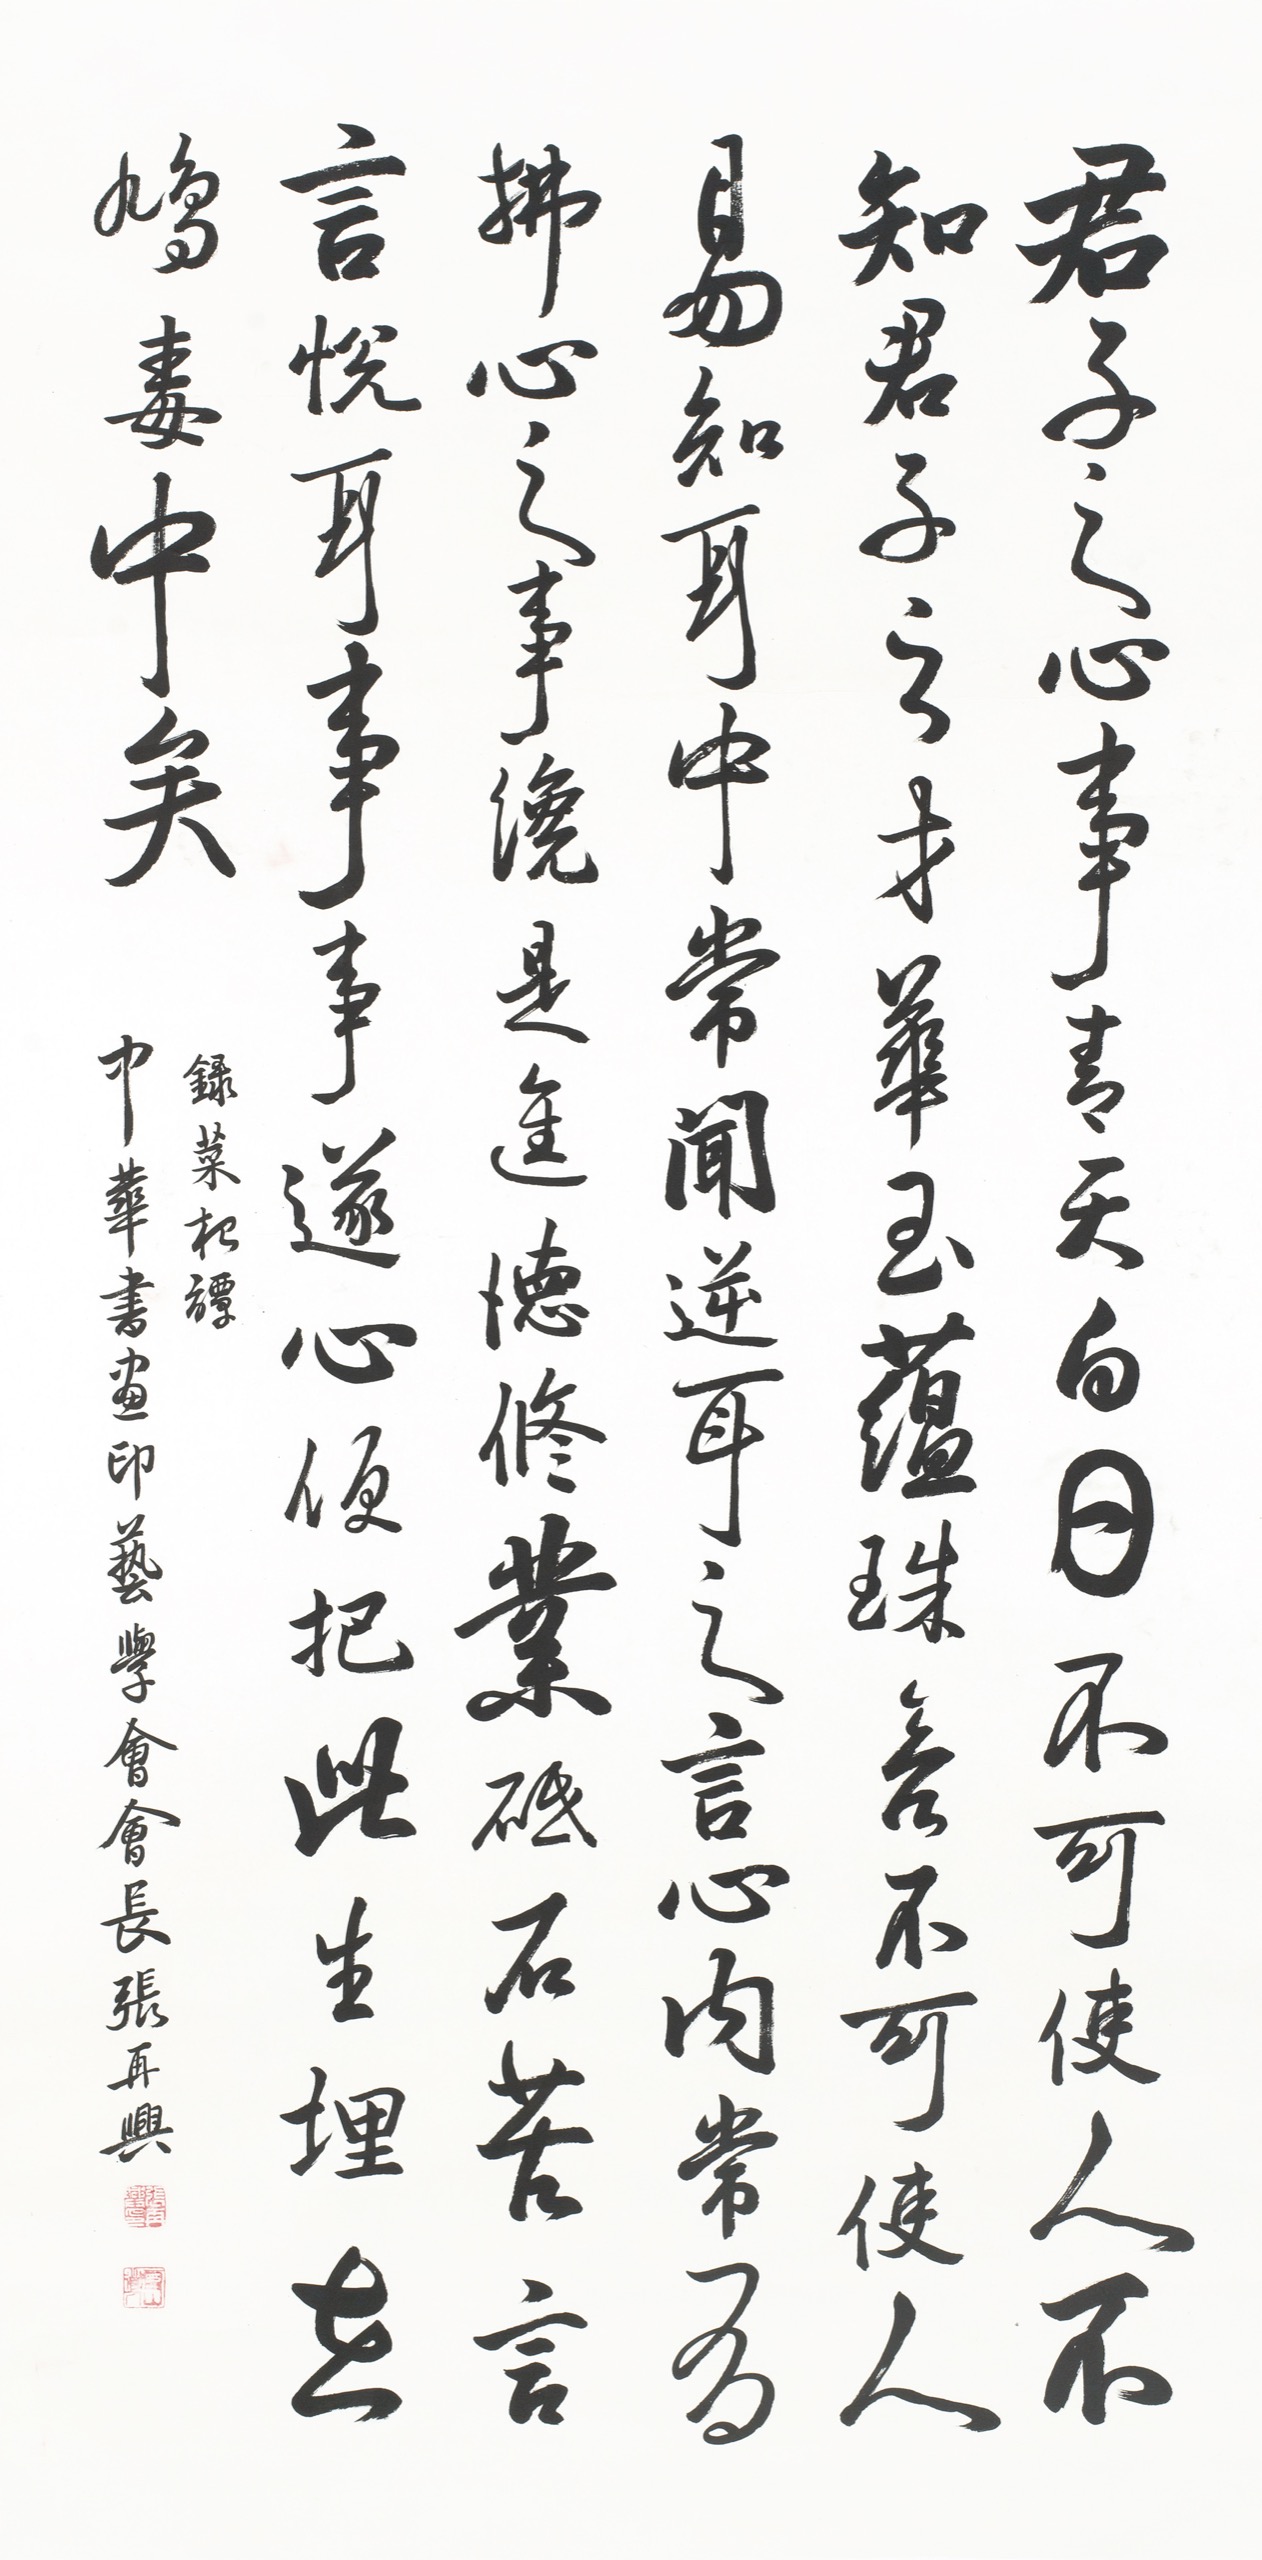 君子之心事青天白日不可使人不
知君子之才華玉蘊珠含不可使人
易知耳中常聞逆耳之言心內常為
拂心之事纔是進德修業砥石若言
言悅耳事事遂心便把此生埋在
鳩毒中矣
錄菜根譚
中華書畫印藝學會會長張再興